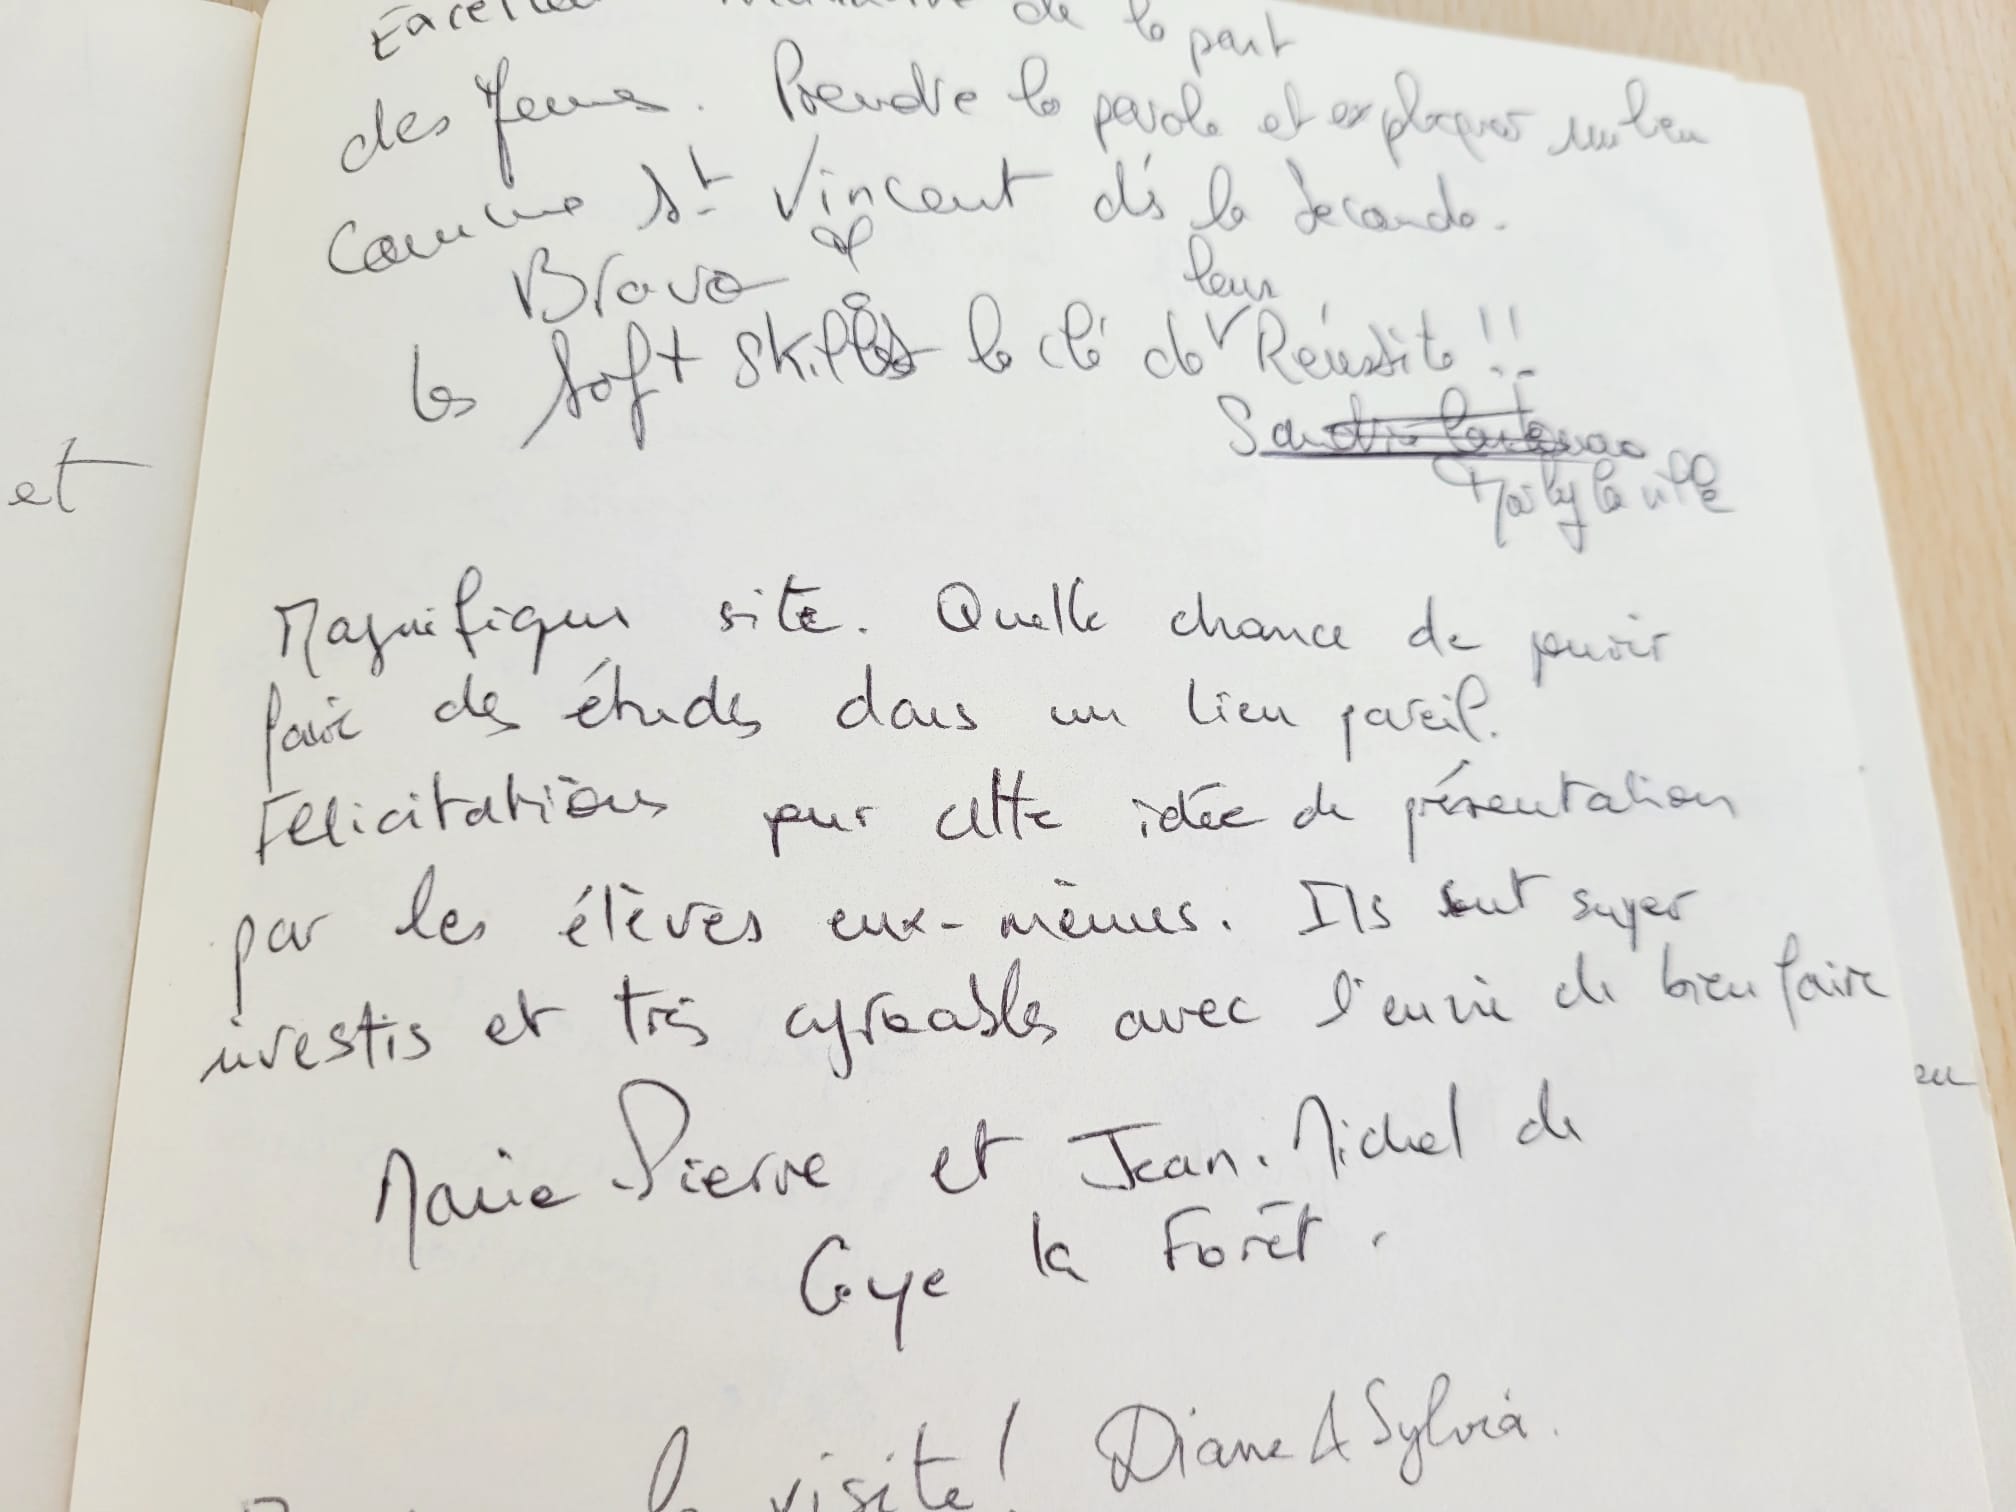 de la part
des Jeunes. Prendre la parole et expliquer un lieu
comme St Vincent dès la Seconde.
Bravo
leur
les Soft Skills la clé de Réussite !!
Marly la ville
et
Magnifique site. Quelle chance de pouvoir
faire des études dans un lieu pareil.
Félicitations pour cette idée de présentation
par les élèves eux-mêmes. Ils sont super
investis et très agréables avec l'envie de bien faire
Marie-Pierre et Jean-Michel de
Coye la Forêt.
la visite ! Diane & Sylvia.